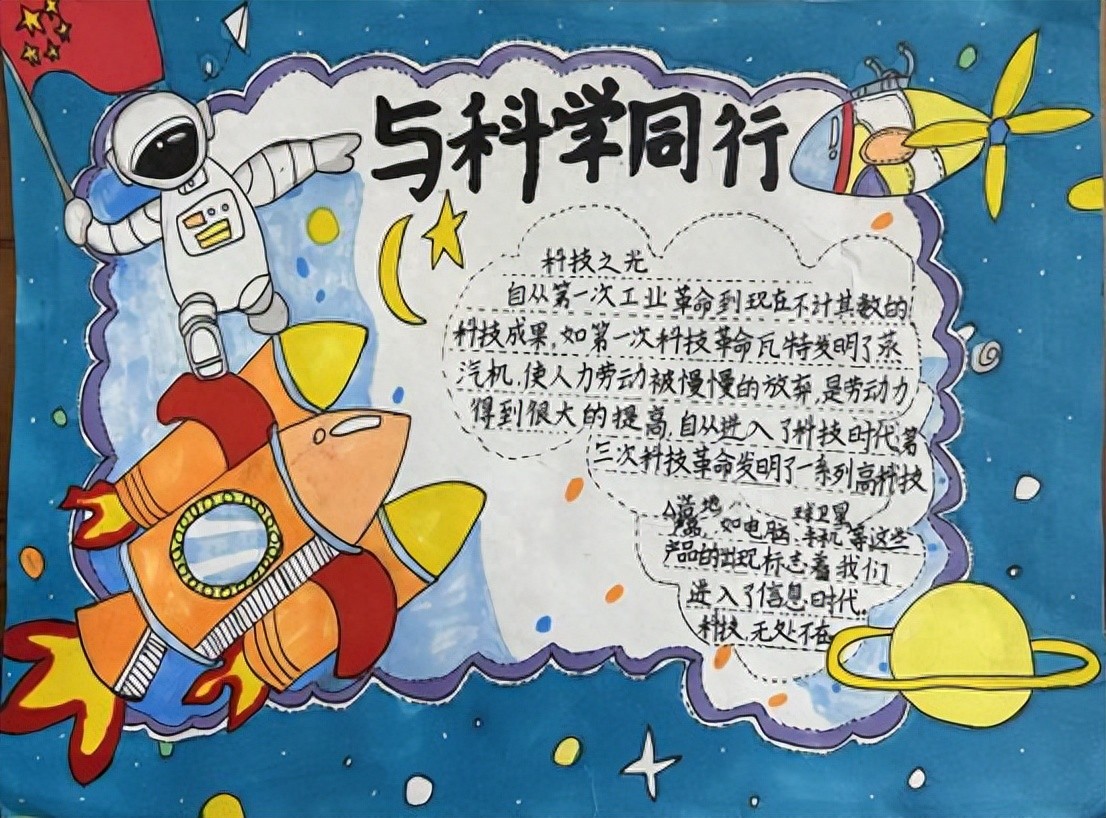 与科学同行
科技之光
自从第一次工业革命到现在不计其数的
科技成果,如第一次科技革命瓦特发明了蒸
汽机.使人力劳动被慢慢的放弃,是劳动力
得到很大的提高,自从进入了科技时代,第
三次科技革命发明了一系列高科技
造地 球卫星
如电脑 手机等这些
产品的出现标志着我们
进入了信息时代.
科技,无处不在